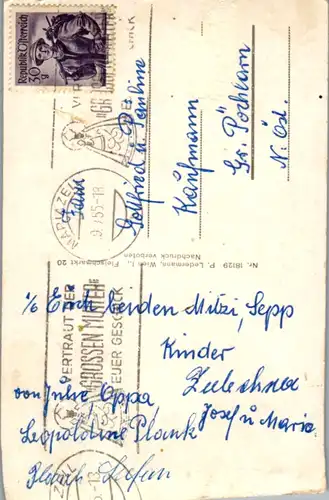 Republik Österreich
30 g
MARIAZELL
9.7.55-18
VERTRAUT DER
"GROSSEN MUTTER"
TEUER GESCHICK
Fam.
Gottfried u. Pauline
Kaufmann
Gr. Pöchlarn
N. Öst.
Nr. 18129 P. Ledermann, Wien I., Fleischmarkt 20
Nachdruck verboten
Euch beiden Mitzi, Sepp
Kinder
von Julie, Oppa
Josef u Maria
Leopoldine Plank